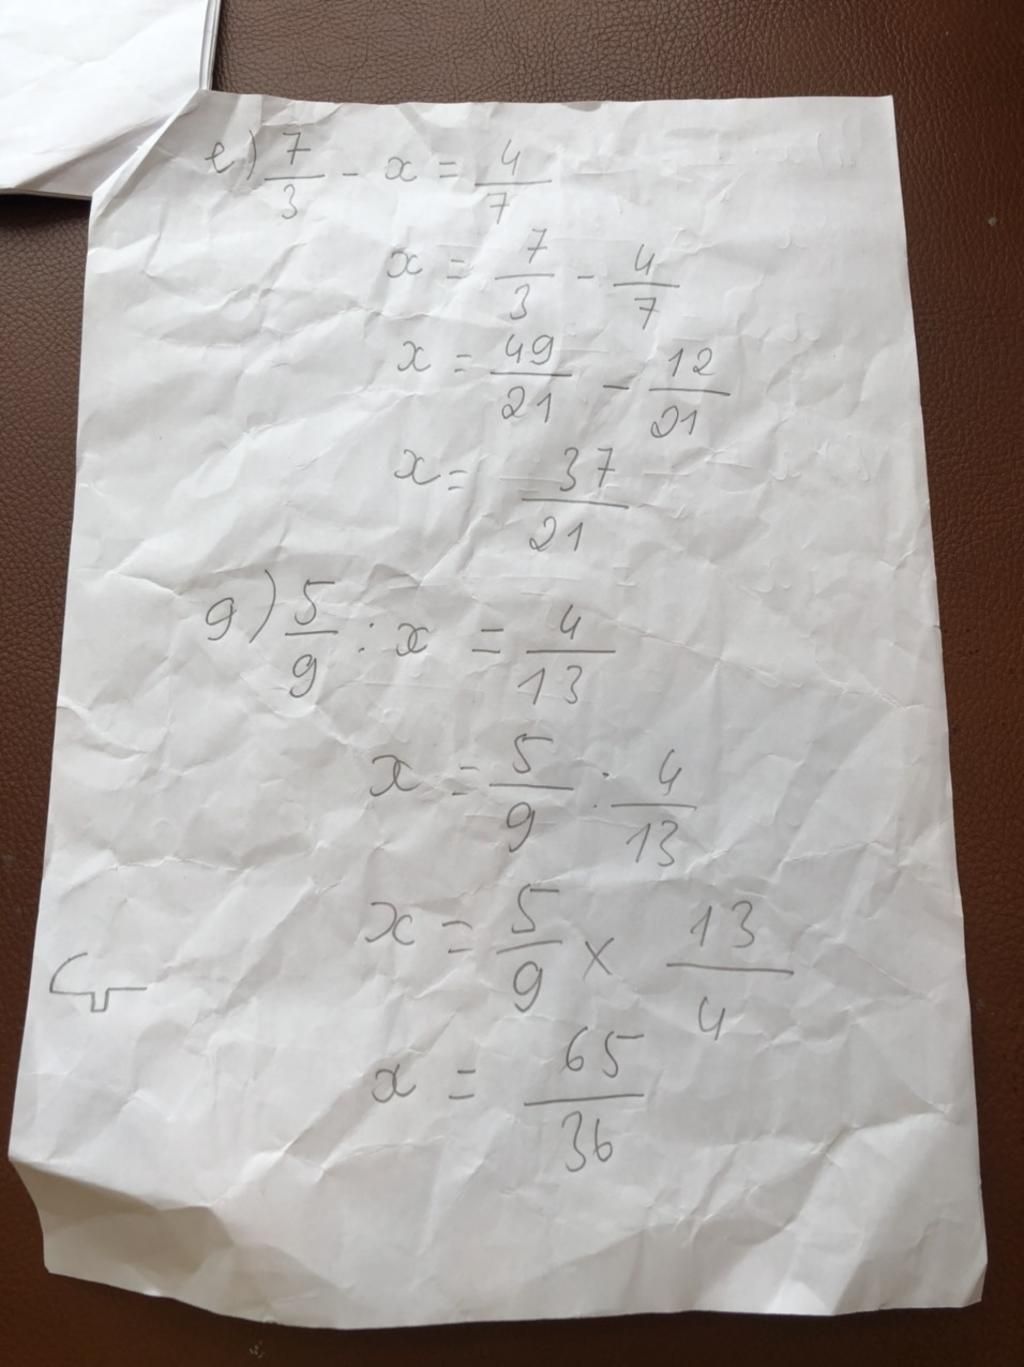 e) 7/3 - x = 4/7
x = 7/3 - 4/7
x = 49/21 - 12/21
x = 37/21
g) 5/9 : x = 4/13
x = 5/9 : 4/13
x = 5/9 × 13/4
x = 65/36